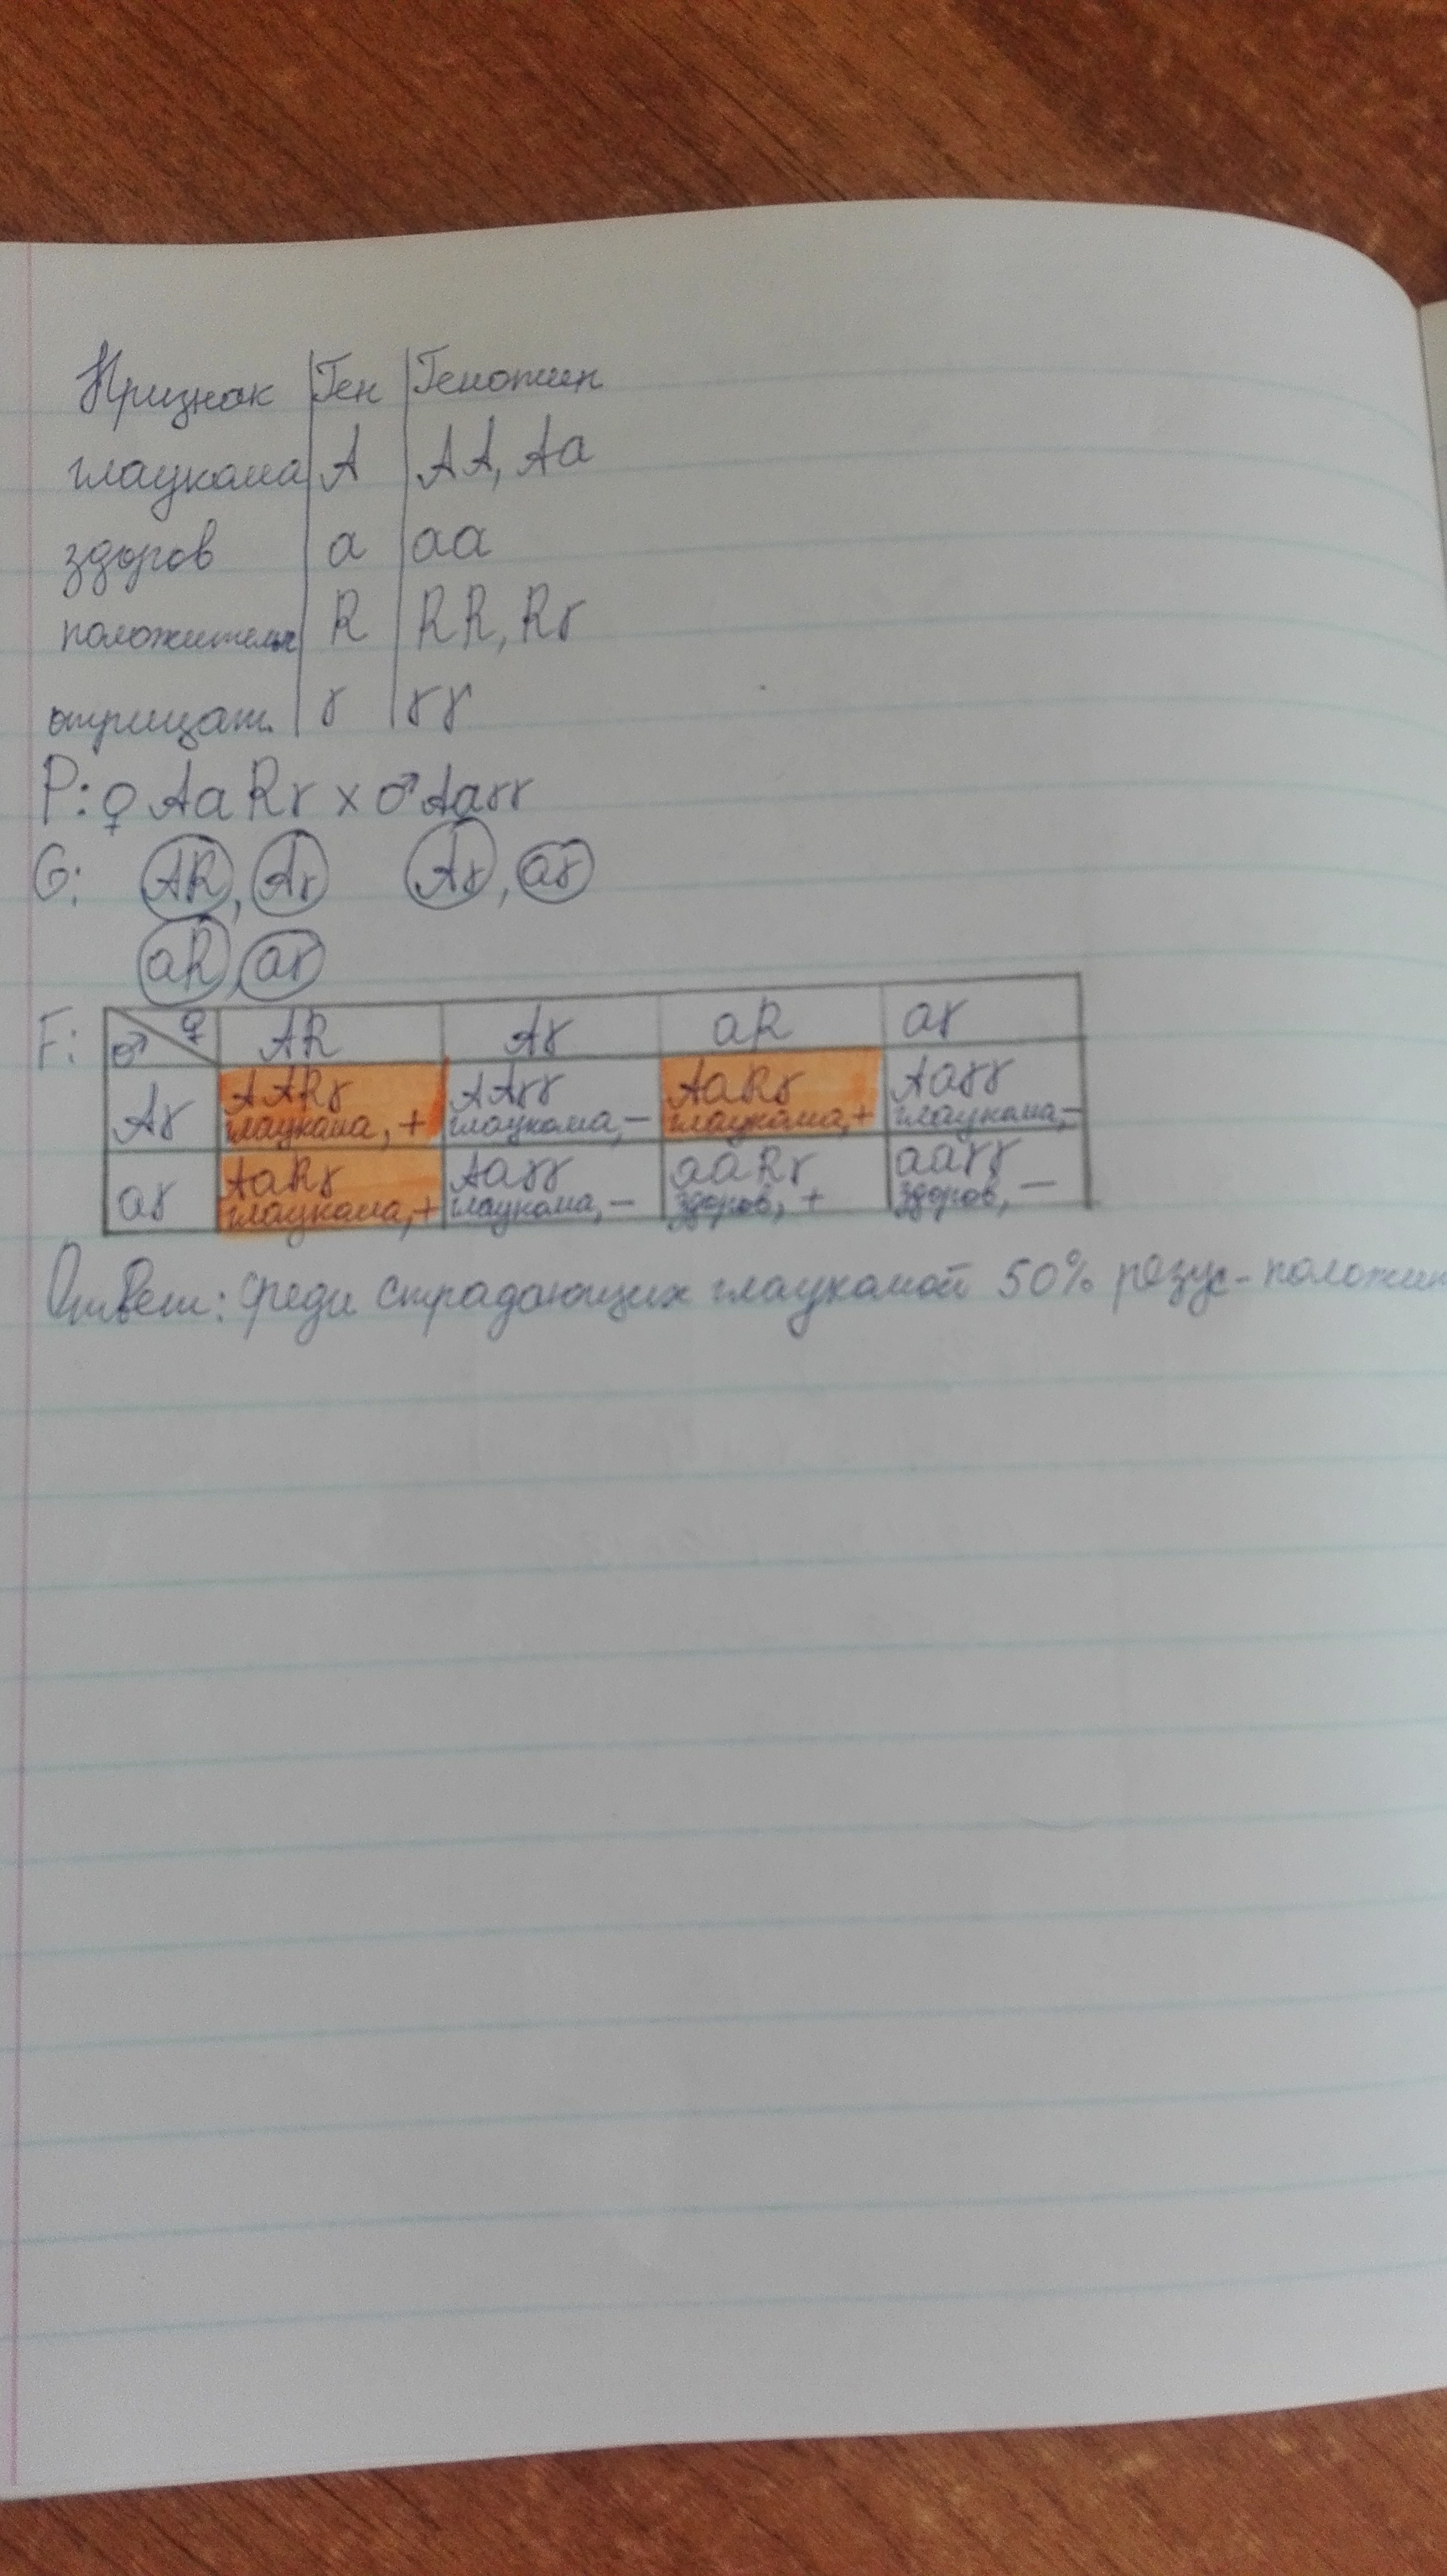 Признак Ген Генотип
глаукома А АА, Аа
здоров а аа
положительн R RR, Rr
отрицат. r rr
P: ♀ AaRr x ♂ Aarr
G: AR, Ar Ar, ar
aR, ar
F: ♂ ♀ AR Ar aR ar
Ar AARr AArr AaRr Aarr
глаукома, + глаукома, − глаукома, + глаукома, −
ar AaRr Aarr aaRr aarr
глаукома, + глаукома, − здоров, + здоров, −
Ответ: среди страдающих глаукомой 50% резус-положит